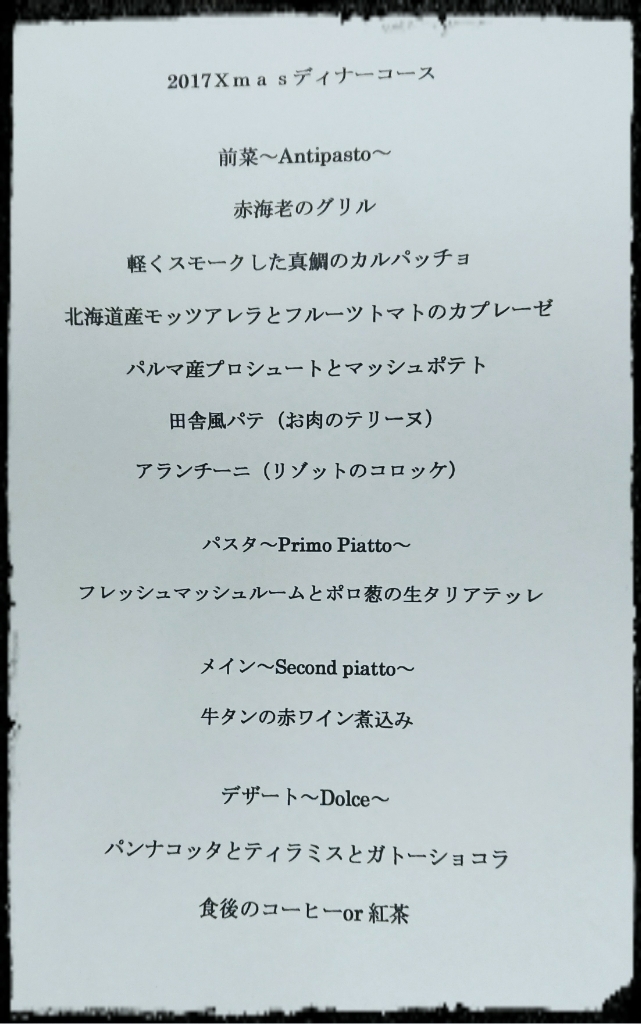 2017Ｘｍａｓディナーコース
前菜～Antipasto～
赤海老のグリル
軽くスモークした真鯛のカルパッチョ
北海道産モッツアレラとフルーツトマトのカプレーゼ
パルマ産プロシュートとマッシュポテト
田舎風パテ（お肉のテリーヌ）
アランチーニ（リゾットのコロッケ）
パスタ～Primo Piatto～
フレッシュマッシュルームとポロ葱の生タリアテッレ
メイン～Second piatto～
牛タンの赤ワイン煮込み
デザート～Dolce～
パンナコッタとティラミスとガトーショコラ
食後のコーヒーor 紅茶